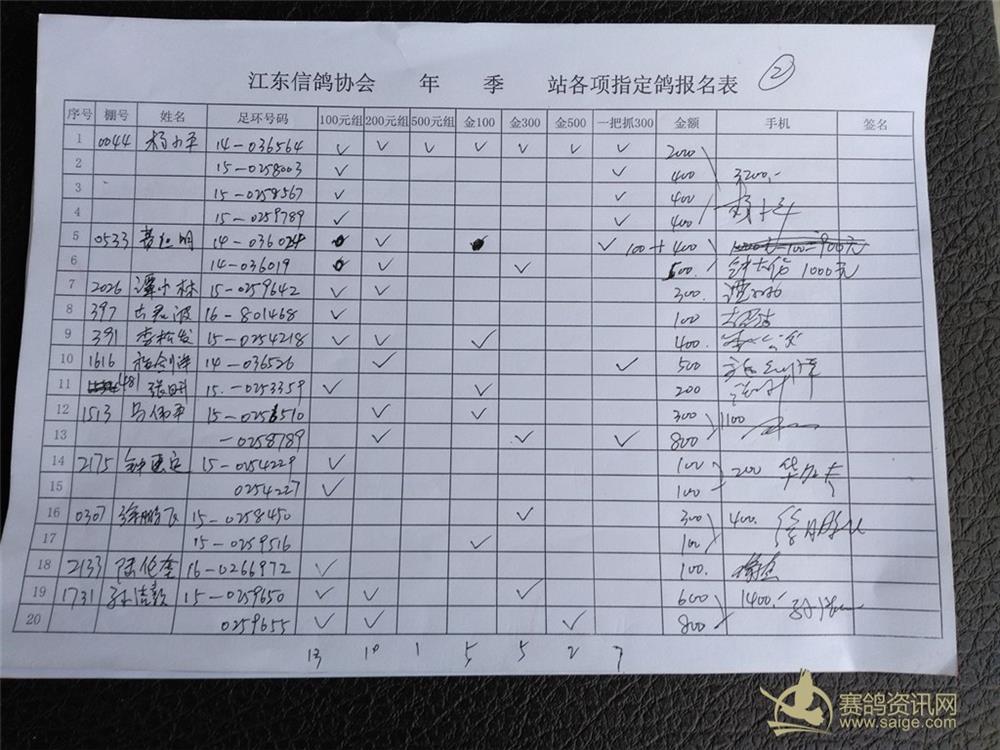 江东信鸽协会 年 季 站各项指定鸽报名表 2
序号 棚号 姓名 足环号码 100元组 200元组 500元组 金100 金300 金500 一把抓300 金额 手机 签名
1 0044 杨小平 14-036564 ✓ ✓ ✓ ✓ ✓ ✓ ✓ 2000
2 15-0258003 ✓ ✓ 400 3200.-
3 15-0258567 ✓ ✓ 400
4 15-0259789 ✓ ✓ 400
5 0533 14-036024 ✓ ✓ 100+400
6 14-036019 ✓ ✓ 500. 1000元
7 2026 谭小林 15-0259642 ✓ ✓ 300.
8 397 16-801468 ✓ 100
9 391 李松发 15-0254218 ✓ ✓ ✓ 400.
10 1616 14-036526 ✓ ✓ 500
11 481 15-0253359 ✓ ✓ 200
12 1513 马伟平 15-0256510 ✓ ✓ 300 1100
13 -0258789 ✓ ✓ ✓ 800
14 2175 15-0254229 ✓ 100 200
15 0254227 ✓ 100
16 0307 徐鹏飞 15-0258450 ✓ 300 400.
17 15-0259516 ✓ 100
18 2133 陆伦奎 16-0266972 ✓ 100.
19 1731 15-0259650 ✓ ✓ ✓ 600 1400.-
20 0259655 ✓ ✓ ✓ 800
13 10 1 5 5 2 7
赛鸽资讯网
www.saige.com